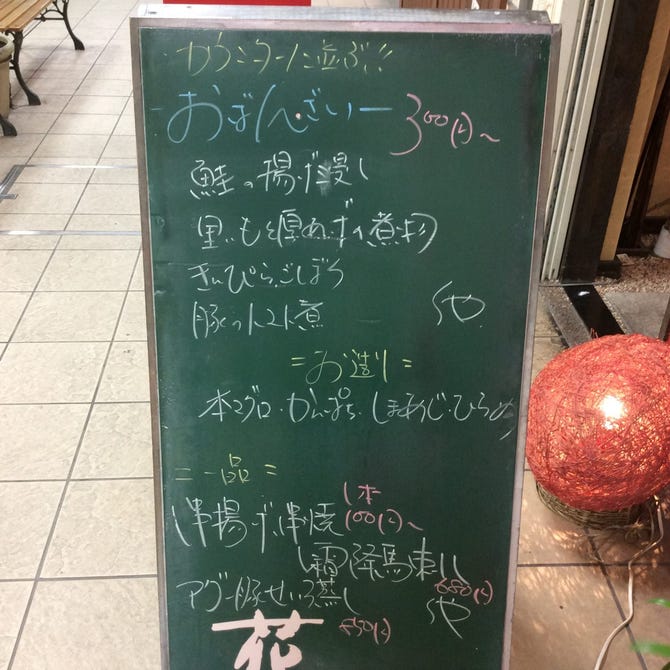 カウンターに並ぶ!!
おばんざいー 300(ド)~
鮭の揚げ浸し
里いもと厚あげの煮物
きんぴらごぼう
豚のトマト煮 など
=お造り=
本マグロ・かんぱち・しまあじ・ひらめ
=一品=
串揚げ、串焼 1本 100(ド)~
霜降馬刺し 680(ド)
アグー豚せいろ蒸し 850(ド) など
花